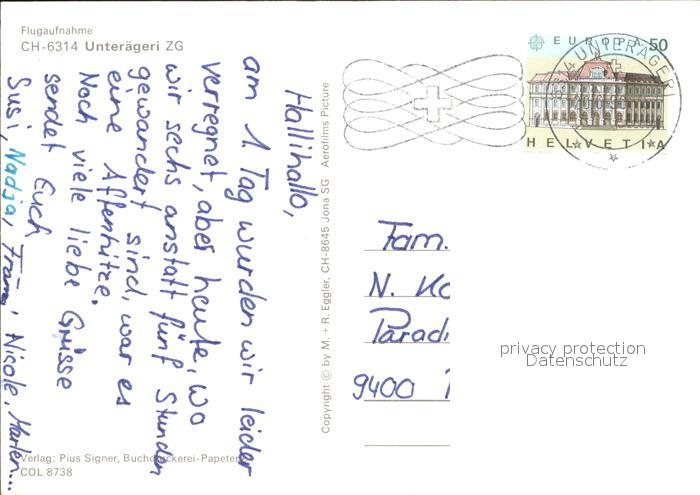 Flugaufnahme
CH-6314 Unterägeri ZG
Hallihallo,
am 1. Tag wurden wir leider
verregnet, aber heute, wo
wir sechs anstatt fünf Stunden
gewandert sind, war es
eine Affenhitze.
Noch viele liebe Grüsse
sendet Euch
Susi, Nadja, Nicole,
Verlag: Pius Signer, Buchdruckerei-Papeterie
COL 8738
Copyright © by M. + R. Eggler, CH-8645 Jona SG Aerofilms Picture
EUROPA 50
HELVETIA
6314 UNTERÄGERI
Fam.
N. Ko
Paradi
9400
privacy protection
Datenschutz